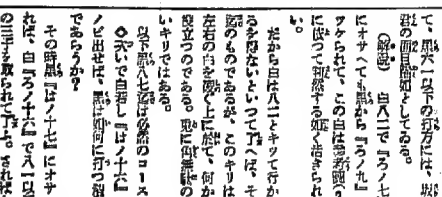 て、黒六一以下の打方には、坂
君の面目躍如としてゐる。
（解説）　白八二で『ろノ七
にオサへても黒から『ろノ九』
ツケられて、この白は
に依つて判然する如く活きられ
い。
だから白は八二とキッて行か
るを得ないといつて了へば、そ
迄のものであるが、このキリは
左右の白を凌ぐ上に於て、何か
役立つのである。兎に角無類の
いキリではある。
以下黒八七迄は必然のコース
◇次いで白若し『はノ十六』
ノビ出せば、黒は如何に打つ積
であらうか？
その時黒『はノ十七』にオサ
れば、白『ろノ十六』で八一以
の三子を取られて了ふ。されば